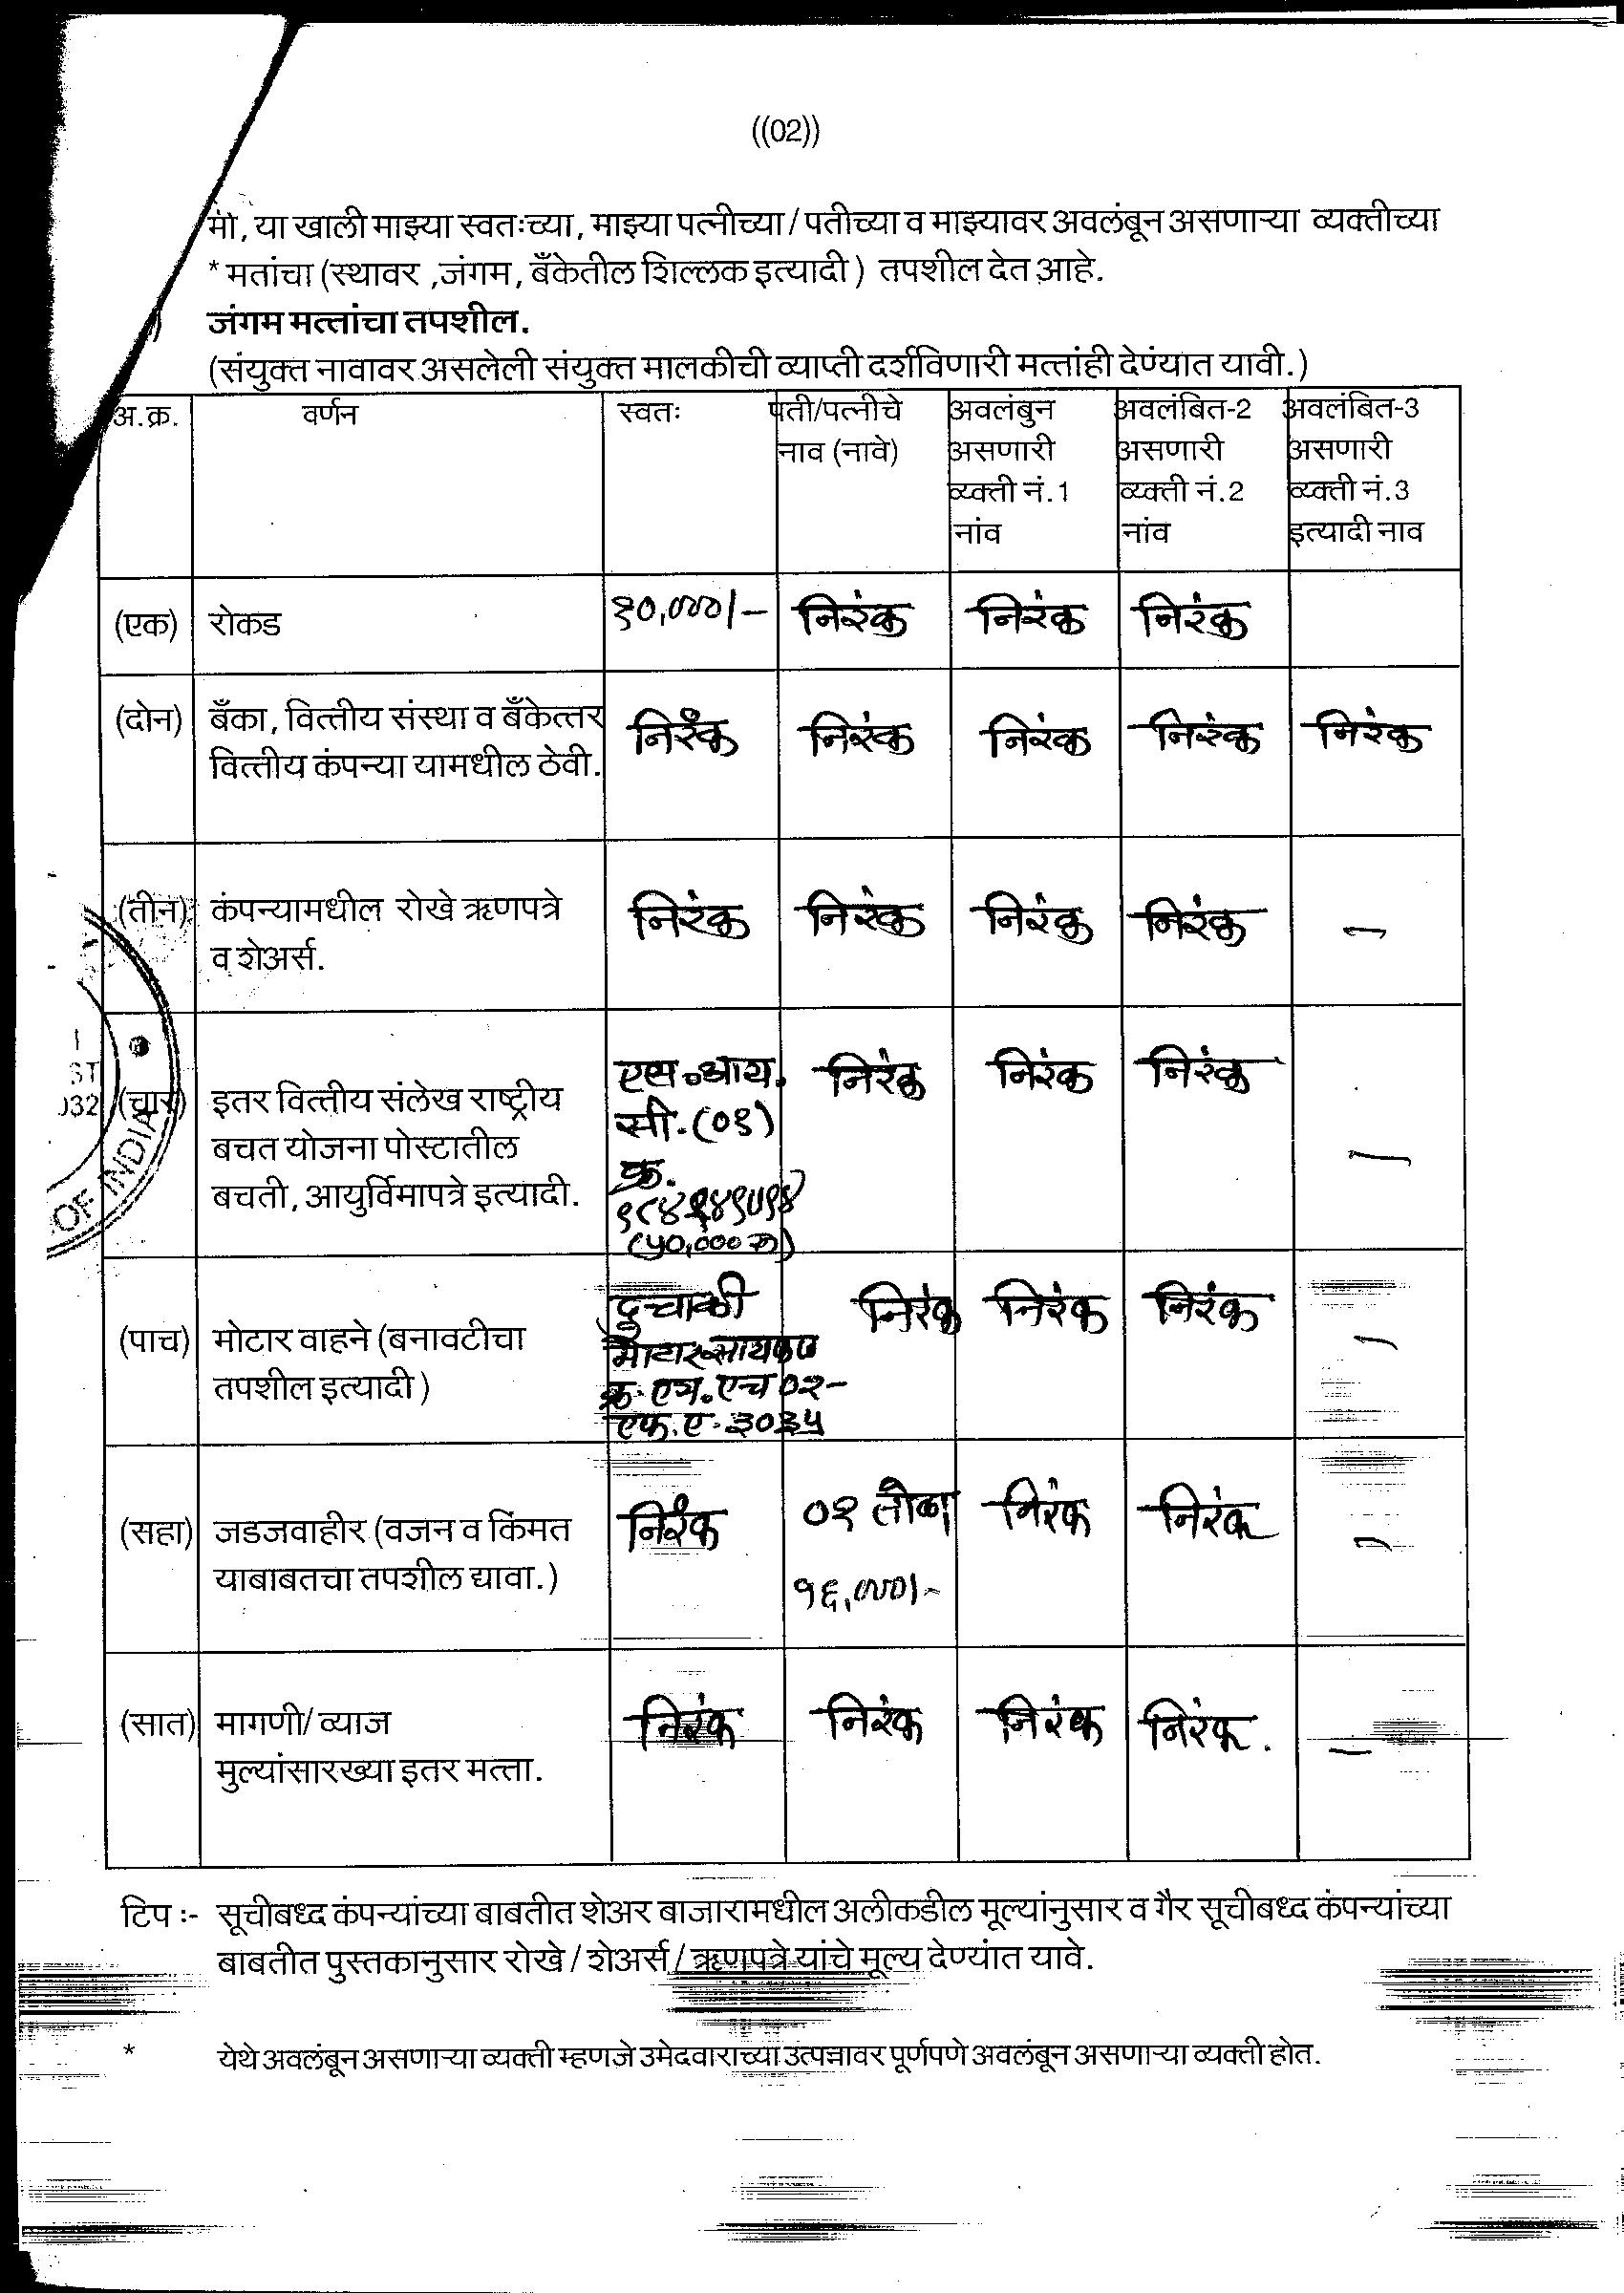 ((02))
मी, या खाली माझ्या स्वतःच्या, माझ्या पत्नीच्या / पतीच्या व माझ्यावर अवलंबून असणाऱ्या व्यक्तीच्या
* मतांचा (स्थावर ,जंगम, बँकेतील शिल्लक इत्यादी) तपशील देत आहे.
जंगम मत्तांचा तपशील.
(संयुक्त नावावर असलेली संयुक्त मालकीची व्याप्ती दर्शविणारी मत्तांही देण्यात यावी.)
अ.क्र. वर्णन स्वतः पती/पत्नीचे अवलंबुन अवलंबित-2 अवलंबित-3
नाव (नावे) असणारी असणारी असणारी
व्यक्ती नं.1 व्यक्ती नं.2 व्यक्ती नं.3
नांव नांव इत्यादी नाव
(एक) रोकड १०,०००/- निरंक निरंक निरंक
(दोन) बँका, वित्तीय संस्था व बँकेत्तर निरंक निरंक निरंक निरंक निरंक
वित्तीय कंपन्या यामधील ठेवी.
(तीन) कंपन्यामधील रोखे ऋणपत्रे निरंक निरंक निरंक निरंक –
व शेअर्स.
एल.आय. निरंक निरंक निरंक
ST
032 (चार) इतर वित्तीय संलेख राष्ट्रीय सी.(०१)
बचत योजना पोस्टातील क्र. –
बचती, आयुर्विमापत्रे इत्यादी.
OF INDIA
(५०,००० रु)
दुचाकी निरंक निरंक निरंक
(पाच) मोटार वाहने (बनावटीचा मोटारसायकल –
तपशील इत्यादी) क्र. एम.एच ०२-
एफ.ए. ३०३५
(सहा) जडजवाहीर (वजन व किंमत निरंक ०१ तोळा निरंक निरंक –
याबाबतचा तपशील द्यावा.) १६,०००/-
(सात) मागणी/ व्याज निरंक निरंक निरंक निरंक. –
मुल्यांसारख्या इतर मत्ता.
टिप :- सूचीबध्द कंपन्यांच्या बाबतीत शेअर बाजारामधील अलीकडील मूल्यांनुसार व गैर सूचीबध्द कंपन्यांच्या
बाबतीत पुस्तकानुसार रोखे / शेअर्स / ऋणपत्रे यांचे मूल्य देण्यांत यावे.
* येथे अवलंबून असणाऱ्या व्यक्ती म्हणजे उमेदवाराच्या उत्पन्नावर पूर्णपणे अवलंबून असणाऱ्या व्यक्ती होत.